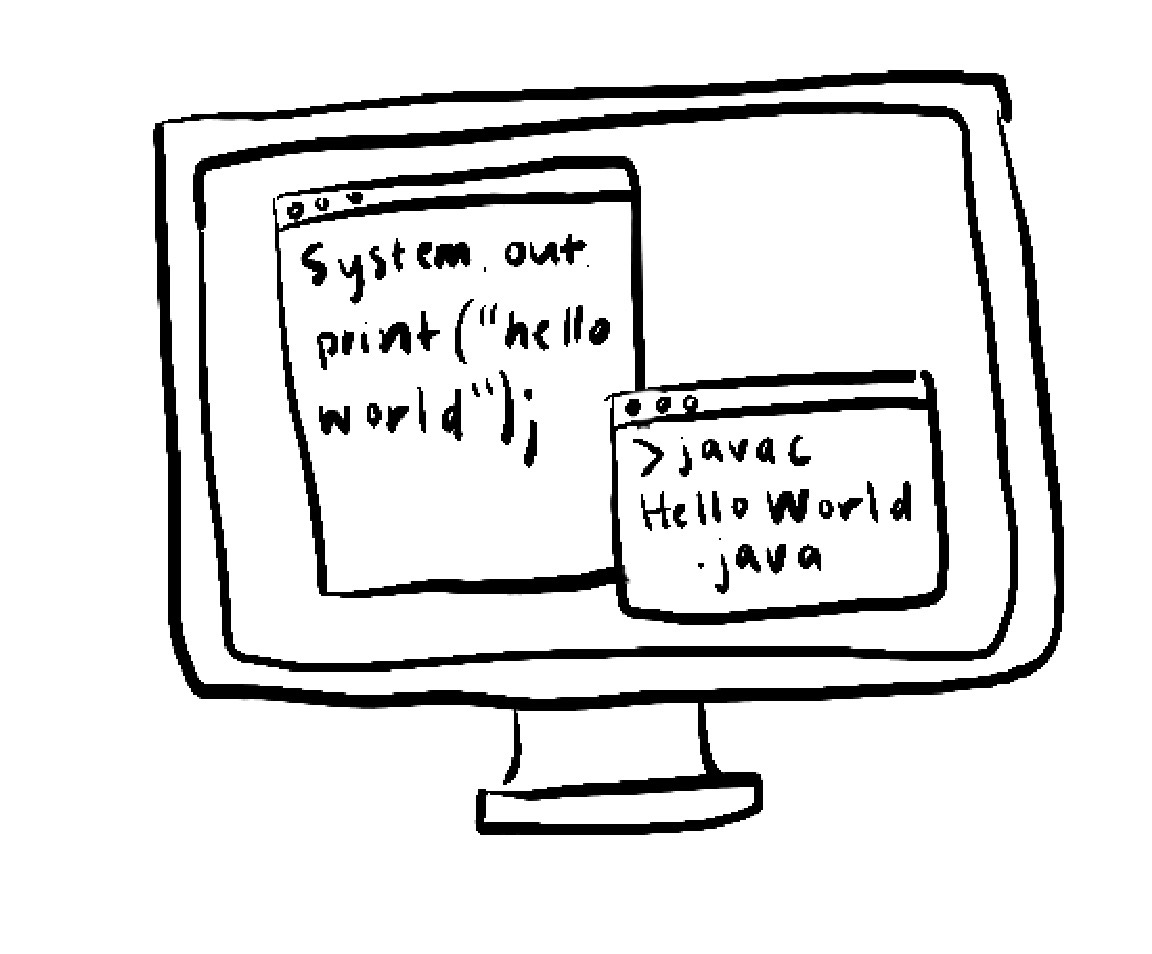 System.out.
print("hello
world");
>javac
HelloWorld
.java